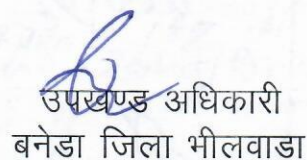 उपखण्ड अधिकारी
बनेडा जिला भीलवाडा